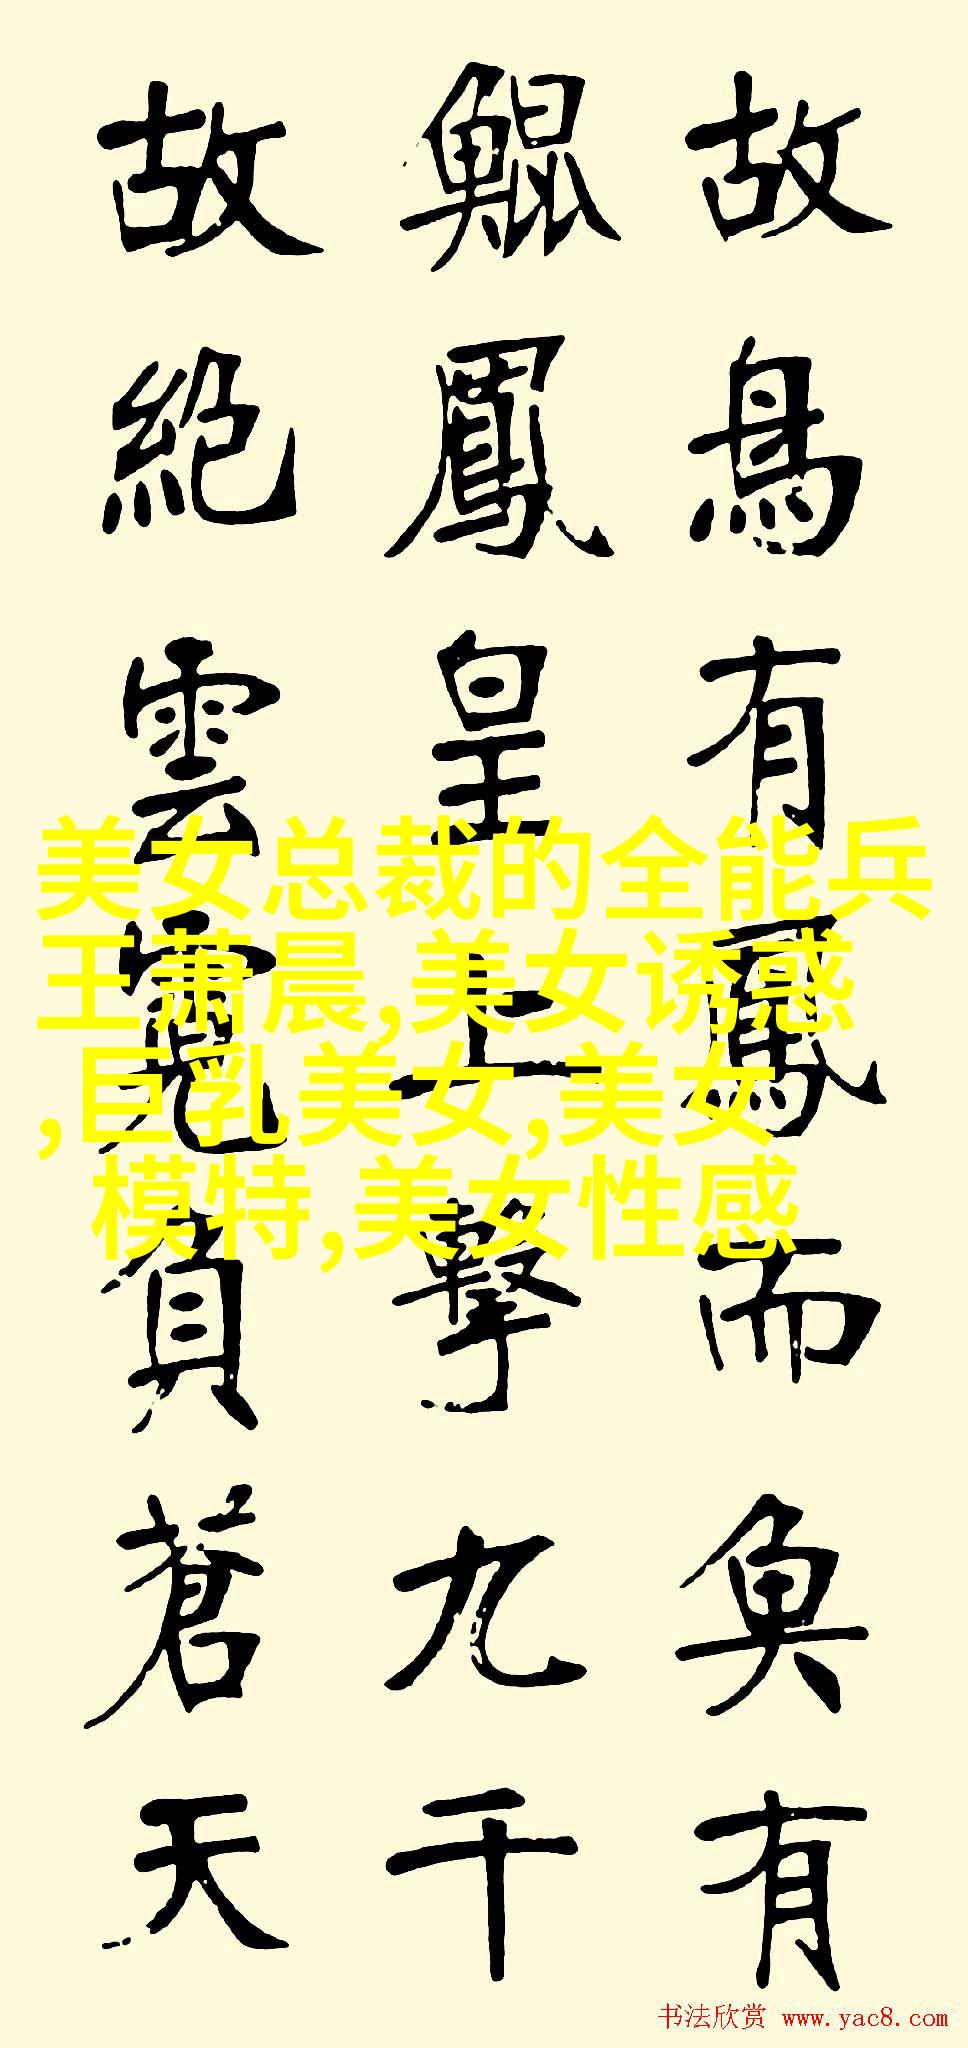 故鳥有鳳而魚有
鯤鳳皇上擊九千
故絕雲霓負蒼天
美女总裁的全能兵
王萧晨,美女诱惑
,巨乳美女,美女
模特,美女性感
书法欣赏 www.yac8.com